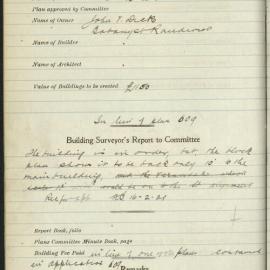 Plan approved by Committee
Name of Owner John T. Dick
Botany St Randwick
Name of Builder
Name of Architect
Value of Buildings to be erected £450
In lieu of plan 609
Building Surveyor's Report to Committee
The building is in order but the block
plan shows it to be back only 12' to the
main building, and the verandah which
Report Book, folio
Plans Committee Minute Book, page
Building Fee Paid in lieu of one plan
in application 609
Remarks